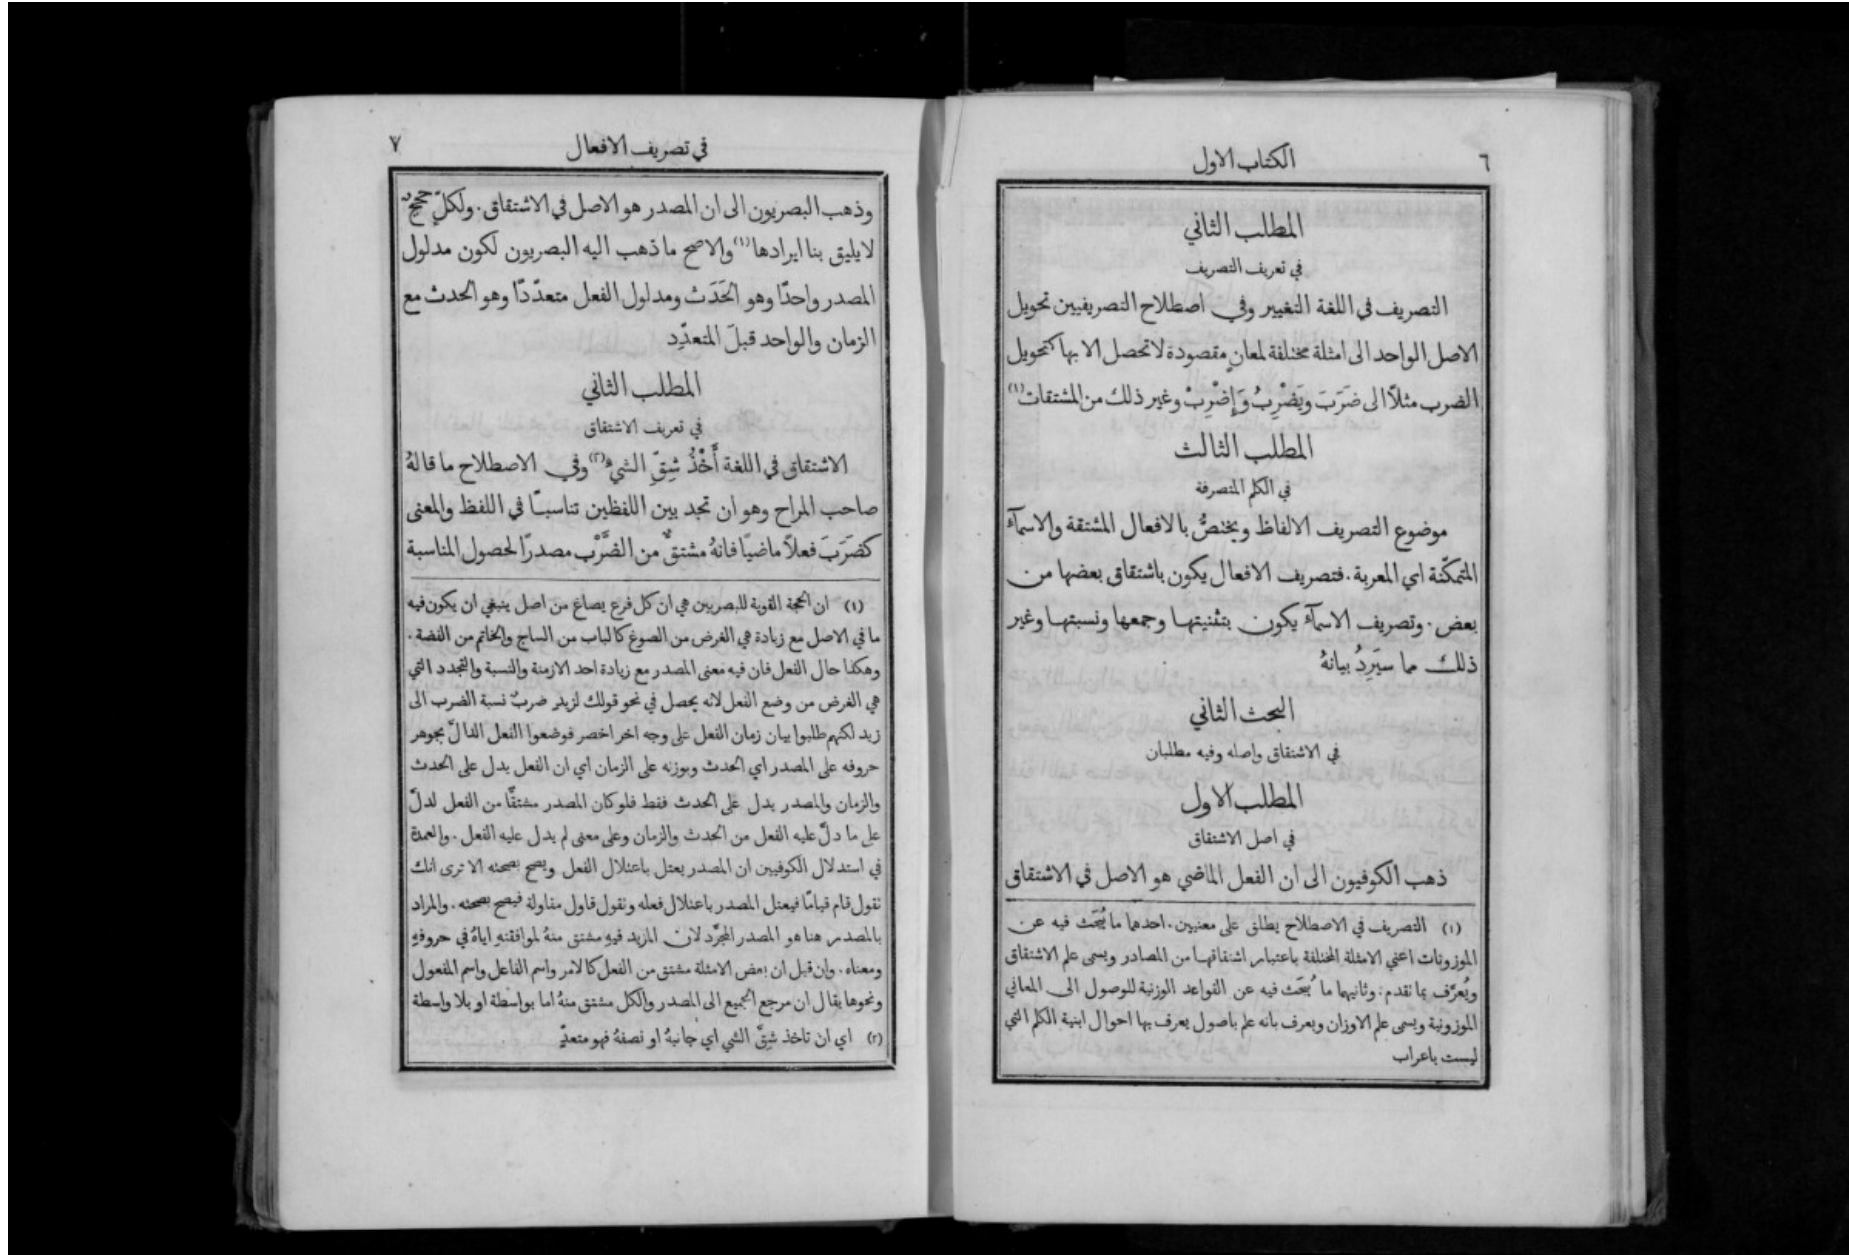 ٦
الكتاب الاول
المطلب الثاني
في تعريف التصريف
التصريف في اللغة التغيير وفي اصطلاح التصريفيين تحويل
الاصل الواحد الى امثلة مختلفة لمعانٍ مقصودة لا تحصل الا بها كتحويل
الضرب مثلًا الى ضَرَبَ ويَضْرِبُ وَإِضْرِبْ وغير ذلك من المشتقات (١)
المطلب الثالث
في الكلم المتصرفة
موضوع التصريف الالفاظ ويختصُّ بالافعال المشتقة والاسمآء
المتمكّنة اي المعربة. فتصريف الافعال يكون باشتقاق بعضها من
بعض. وتصريف الاسمآء يكون بتثنيتها وجمعها ونسبتها وغير
ذلك مما سيَرِدُ بيانهُ
البحث الثاني
في الاشتقاق واصله وفيه مطلبان
المطلب الاول
في اصل الاشتقاق
ذهب الكوفيون الى ان الفعل الماضي هو الاصل في الاشتقاق
(١) التصريف في الاصطلاح يطلق على معنيين. احدهما ما يُبحَث فيه عن
الموزونات اعني الامثلة المختلفة باعتبار اشتقاقها من المصادر ويسمى علم الاشتقاق
ويُعرَّف بما تقدم. وثانيهما ما يُبحَث فيه عن القواعد الوزنية للوصول الى المعاني
الموزونية ويسمى علم الاوزان ويعرف بانه علم باصول يعرف بها احوال ابنية الكلم التي
ليست باعراب
في تصريف الافعال
٧
وذهب البصريون الى ان المصدر هو الاصل في الاشتقاق. ولكلٍّ حججٌ
لا يليق بنا ايرادها (١) والاصح ما ذهب اليه البصريون لكون مدلول
المصدر واحدًا وهو الحَدَث ومدلول الفعل متعدّدًا وهو الحدث مع
الزمان والواحد قبلَ المتعدّد
المطلب الثاني
في تعريف الاشتقاق
الاشتقاق في اللغة أَخْذُ شِقِّ الشيء (٢) وفي الاصطلاح ما قالهُ
صاحب المراح وهو ان تجد بين اللفظين تناسبًا في اللفظ والمعنى
كضَرَبَ فعلًا ماضيًا فانهُ مشتقٌّ من الضَّرْب مصدرًا لحصول المناسبة
(١) ان الحجة القوية للبصريين هي ان كل فرع يصاغ من اصل ينبغي ان يكون فيه
ما في الاصل مع زيادة هي الغرض من الصوغ كالباب من الساج والخاتم من الفضة.
وهكذا حال الفعل فان فيه معنى المصدر مع زيادة احد الازمنة والنسبة والتجدد التي
هي الغرض من وضع الفعل لانه يحصل في نحو قولك لزيدٍ ضربٌ نسبة الضرب الى
زيد لكنهم طلبوا بيان زمان الفعل على وجه اخر اخصر فوضعوا الفعل الدالّ بجوهر
حروفه على المصدر اي الحدث وبوزنه على الزمان اي ان الفعل يدل على الحدث
والزمان والمصدر يدل على الحدث فقط فلو كان المصدر مشتقًّا من الفعل لدلّ
على ما دلّ عليه الفعل من الحدث والزمان وعلى معنى لم يدل عليه الفعل. والعمدة
في استدلال الكوفيين ان المصدر يعتل باعتلال الفعل ويصح بصحته الا ترى انك
تقول قام قيامًا فيعتل المصدر باعتلال فعله وتقول قاول مقاولة فيصح بصحته. والمراد
بالمصدر هنا هو المصدر المجرَّد لان المزيد فيهِ مشتق منهُ لموافقتهِ اياهُ في حروفهِ
ومعناه. وان قيل ان بعض الامثلة مشتق من الفعل كالامر واسم الفاعل واسم المفعول
ونحوها يقال ان مرجع الجميع الى المصدر والكل مشتق منهُ اما بواسطة او بلا واسطة
(٢) اي ان تاخذ شِقَّ الشي اي جانبهُ او نصفهُ فهو متعدٍّ